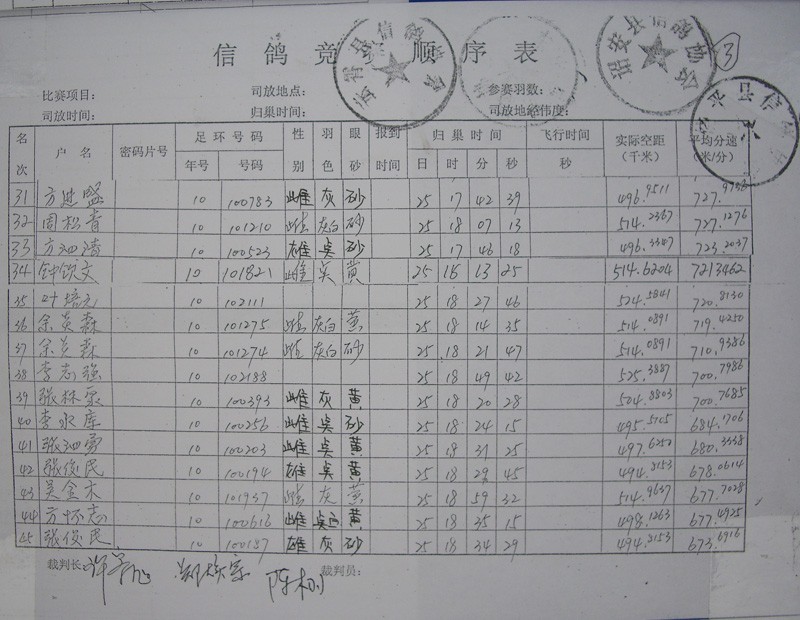 信鸽竞 顺序表
③
比赛项目： 司放地点： 参赛羽数：
司放时间： 归巢时间： 司放地经纬度：
名次 户名 密码片号 足环号码 性别 羽色 眼砂 报到时间 归巢时间 飞行时间 实际空距（千米） 平均分速（米/分）
年号 号码 日 时 分 秒 秒
31 方进盛 10 100783 雌 灰 砂 25 17 42 39 496.9511 727.
32 周松青 10 101210 雌 灰白 砂 25 18 07 13 514.2367 727.1276
33 10 100523 雄 吴 砂 25 17 46 18 496.3387 723.2037
34 钟饮文 10 101821 雌 吴 黄 25 13 25 514.6204 7213462
35 叶培元 10 102111 25 18 27 46 524.5841 720.8130
36 余英森 10 101275 雌 灰白 黄 25 18 14 35 514.0891 719.4250
37 余英森 10 101274 雌 灰白 砂 25 18 21 47 514.0891 710.9386
38 李志强 10 102188 25 18 49 42 525.3887 700.7986
39 张林 10 100393 雌 灰 黄 25 18 20 28 504.8803 700.7685
40 李永库 10 100256 雌 吴 砂 25 18 24 15 495.5105 684.1706
41 张泗勇 10 100203 雌 吴 黄 25 18 31 25 497.6250 680.3338
42 张俊民 10 100194 雄 吴 黄 25 18 29 45 494.8153 678.0614
43 吴金木 10 101937 雌 灰 黄 25 18 59 32 514.9637 677.7028
44 方怀志 10 100616 雌 吴白 黄 25 18 35 15 498.1263 677.4925
45 张俊民 10 100187 雄 灰 砂 25 18 34 29 494.8153 673.6916
裁判长： 裁判员：